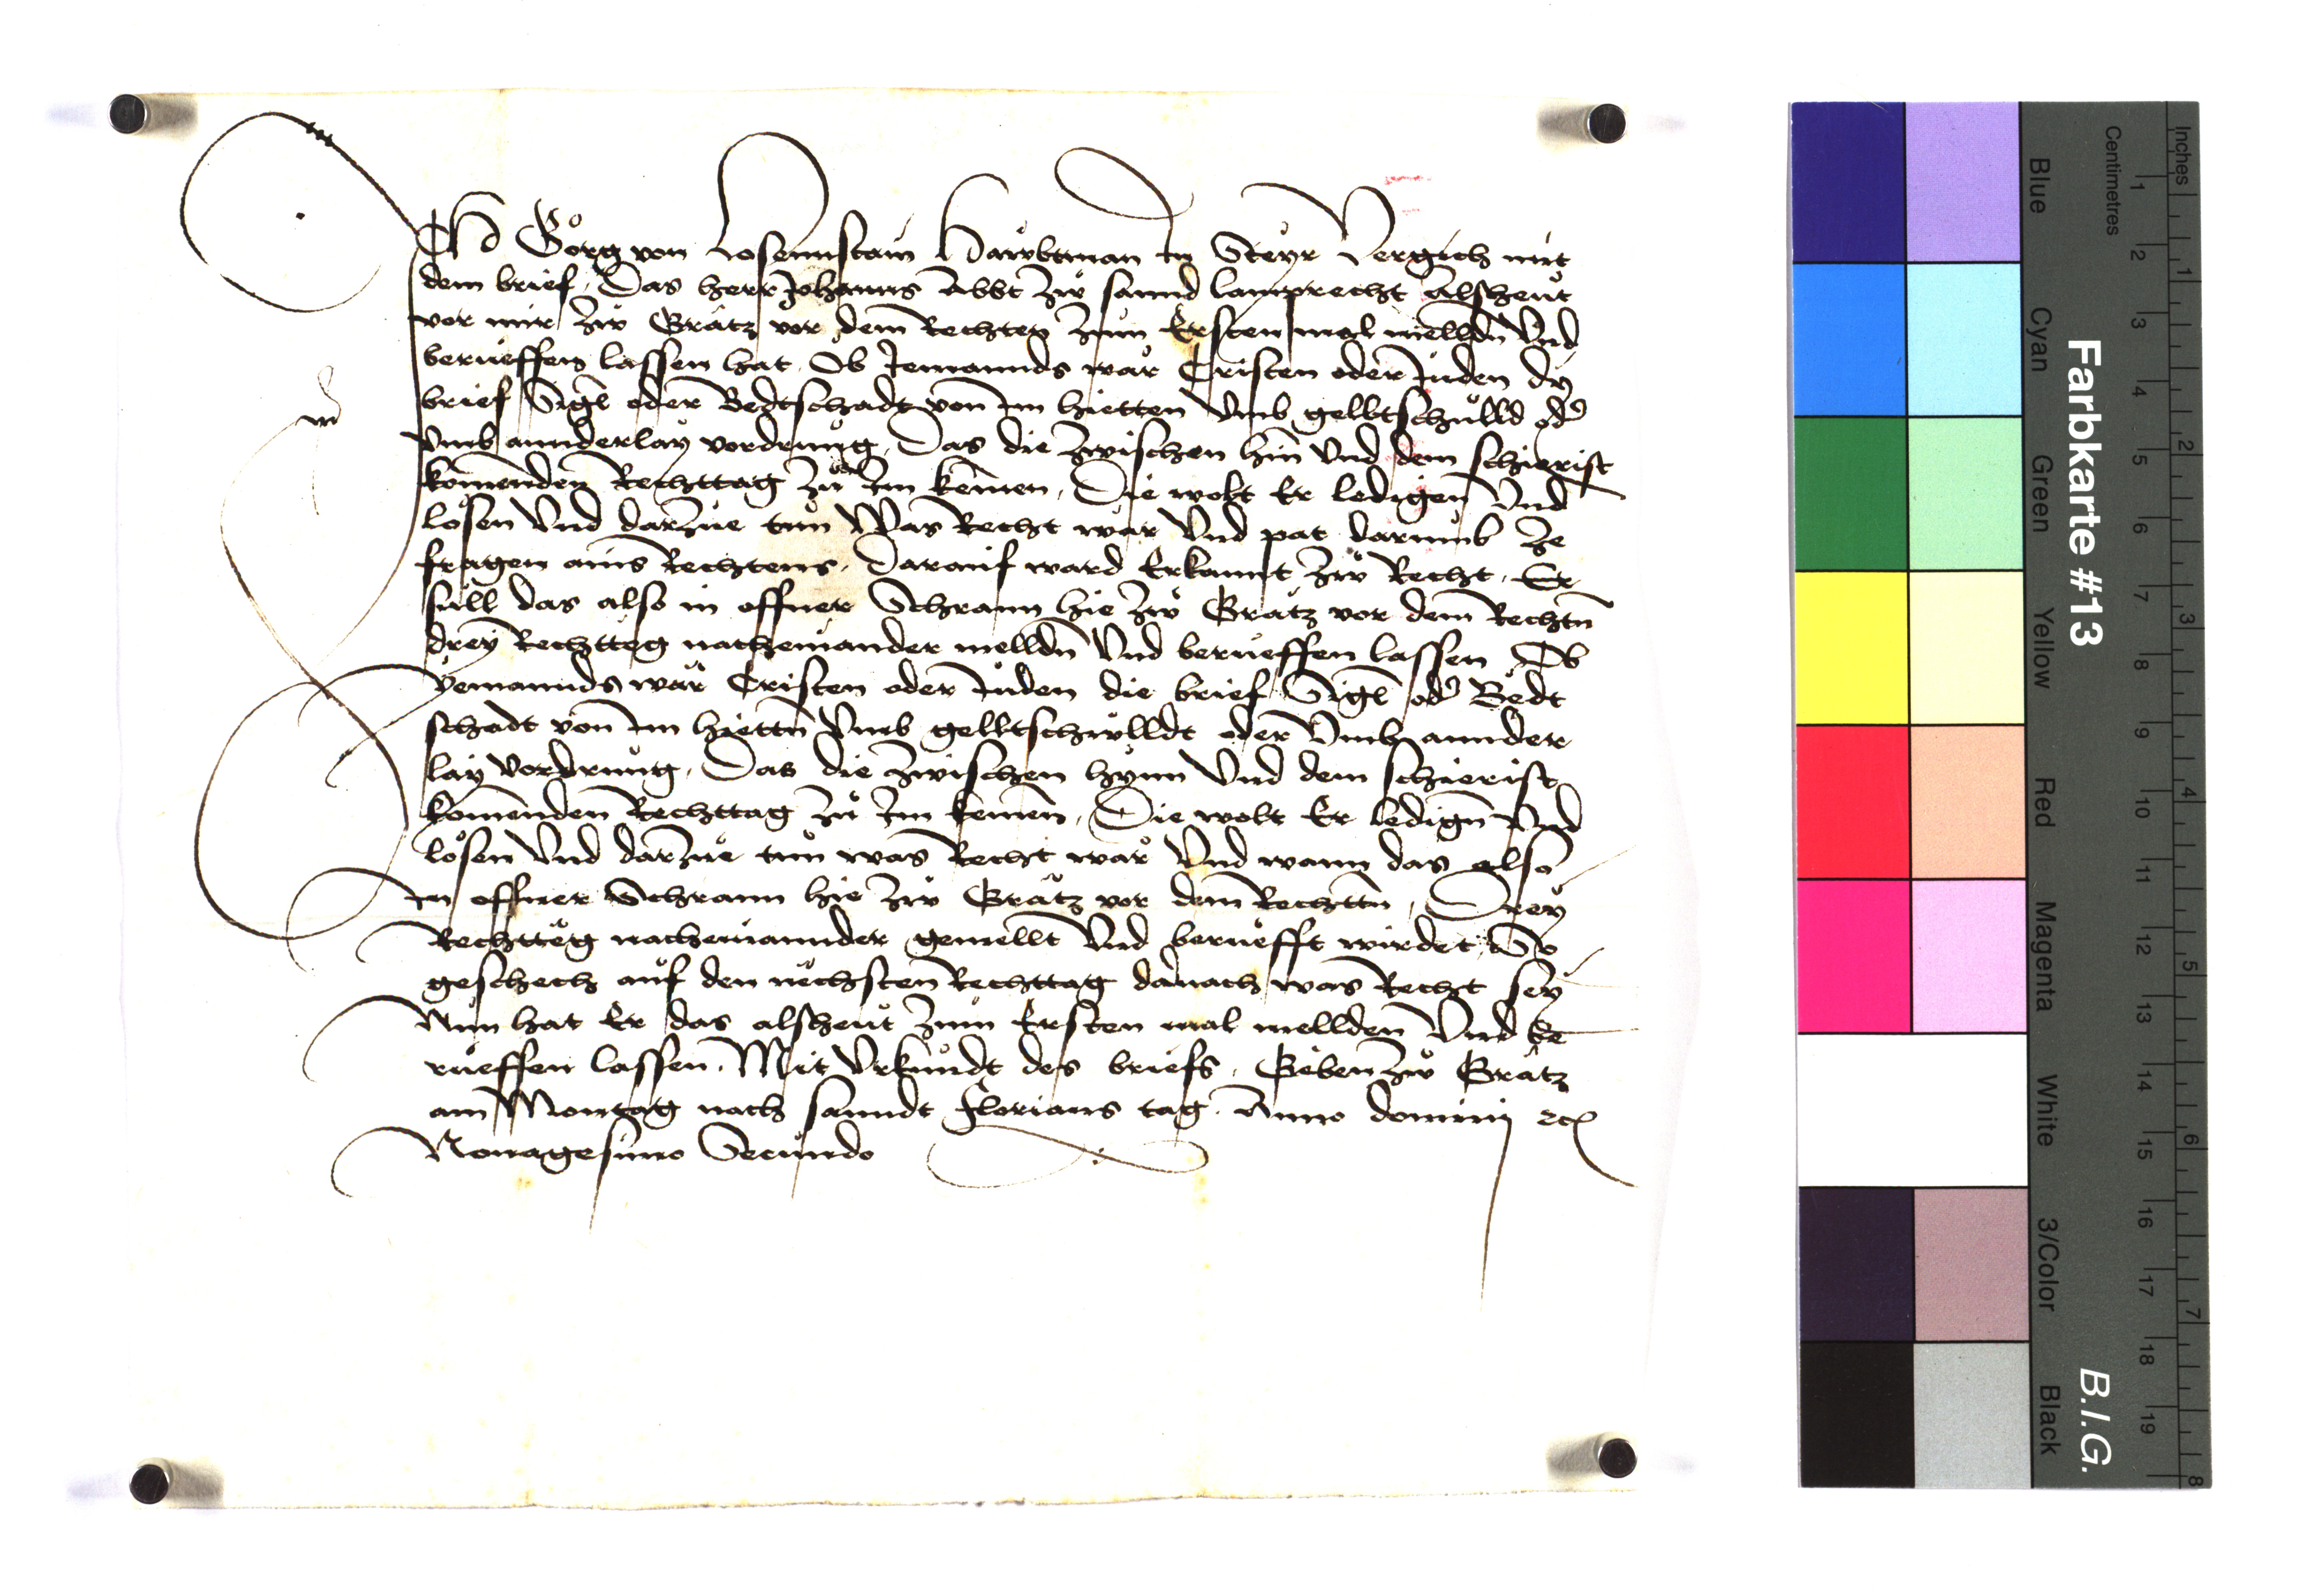 Ich Görg von Losennstain Hawbtman in Steyr Vergich mit
dem brief, Das herr Johanns Abbt zw sannd Lamprecht Alsheut
vor mir zw Grätz vor dem Rechten zum Ersten mal mellden Vnd
berueffen lassen hat, Ob Jemannds wär Cristen oder Juden dy
brief Sigl oder Bedtschadt von im hietten Vmb gelltschulld oder
Vmb annderlay vordrung, Das die zwischen hin Vnd dem schierist
komenden Rechttag zu Im kemen, Die wolt Er ledigen Vnd
lösen Vnd darzue tun Was Recht wär Vnd pat darumb ze
fragen ains Rechtens, Darauf ward Erkannt zw Recht, Er
süll das also in offner Schrann hie zw Grätz vor dem Rechtn
drey Rechtteg nacheinander melldn Vnd berueffen lassen Ob
yemannds wär Cristen oder Juden die brief Sigl oder Bedt
schadt von im hiettn Vmb gelltschwlldt oder Vmb annder
lay Vordrung, Das die zwischen hynn Vnd dem schierist
komenden Rechttag zu Im kemen, Die wolt Er ledign Vnd
lösen Vnd darzue tun was Recht wär Vnd wann das also
in offner Schrann hie zw Grätz vor dem Rechttn, Drey
Rechtteg nacheinannder gemellt Vnd berüefft wirdet, So
geschech auf den nechsten Rechttag danach was Recht sey
Nun hat Er das alsheut zum Ersten mal mellden Vnd be
rueffen lassen, Mit Vrkundt des briefs, Geben zw Grätz
am Montag nach sanndt Florians tag, Anno domini etc
Nonagesimo Secundo
Farbkarte #13
B.I.G.
Inches
Centimetres
1 2 3 4 5 6 7 8 9 10 11 12 13 14 15 16 17 18 19
1 2 3 4 5 6 7 8
Blue
Cyan
Green
Yellow
Red
Magenta
White
3/Color
Black